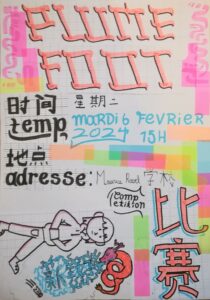 PLUME
FOOT
时间 星期二
temp: MARDI 6 FEVRIER
2024 15H
地点
adresse: Maurice Ravel 学校
Competition
比赛